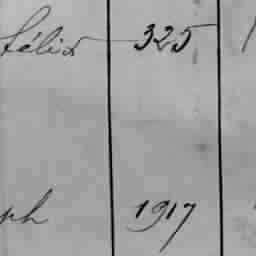 Félix 325
ph 1917